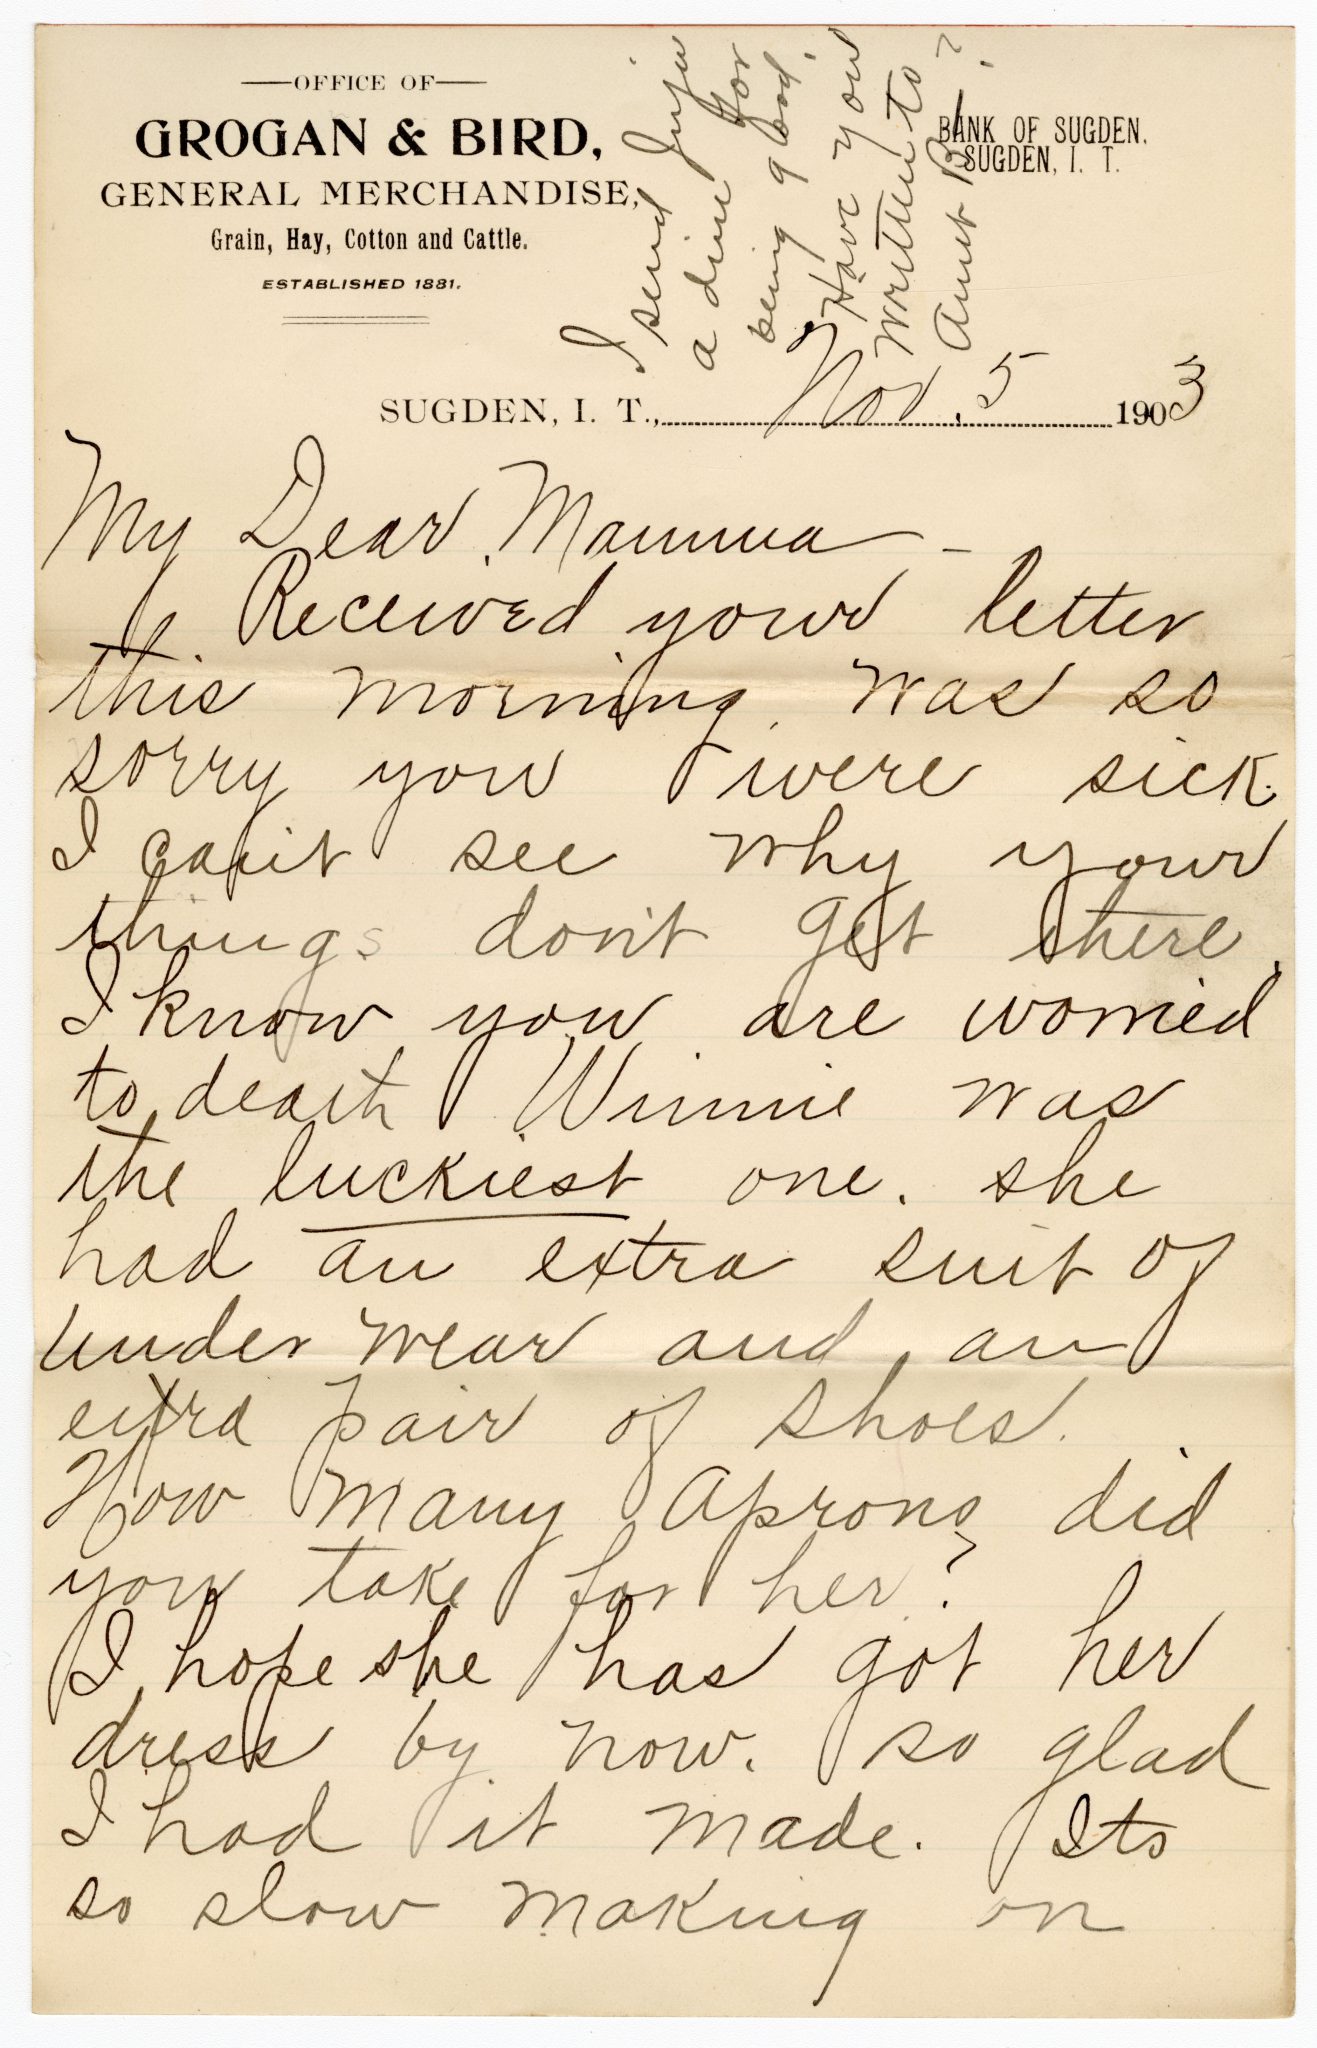 OFFICE OF
GROGAN & BIRD,
GENERAL MERCHANDISE,
Grain, Hay, Cotton and Cattle.
ESTABLISHED 1881.
BANK OF SUGDEN.
SUGDEN, I. T.
I send
a dime for
being good.
Have you
written to
Aunt B?
SUGDEN, I. T., Nov. 5 1903
My Dear Mamma -
Received your letter
this morning. was so
sorry you were sick.
I can't see why your
things don't get there.
I know you are worried
to death Winnie was
the luckiest one. she
had an extra suit of
under wear and an
extra pair of shoes.
How many aprons did
you take for her?
I hope she has got her
dress by now. so glad
I had it made. Its
so slow making on